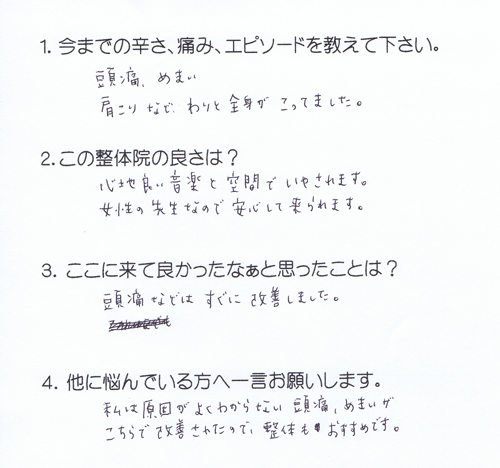 1. 今までの辛さ、痛み、エピソードを教えて下さい。
頭痛、めまい
肩こりなど、わりと全身がこってました。
2.この整体院の良さは？
心地良い音楽と空間でいやされます。
女性の先生なので安心して来られます。
3. ここに来て良かったなぁと思ったことは？
頭痛などはすぐに改善しました。
4. 他に悩んでいる方へ一言お願いします。
私は原因がよくわからない頭痛、めまいが
こちらで改善されたので、整体もおすすめです。